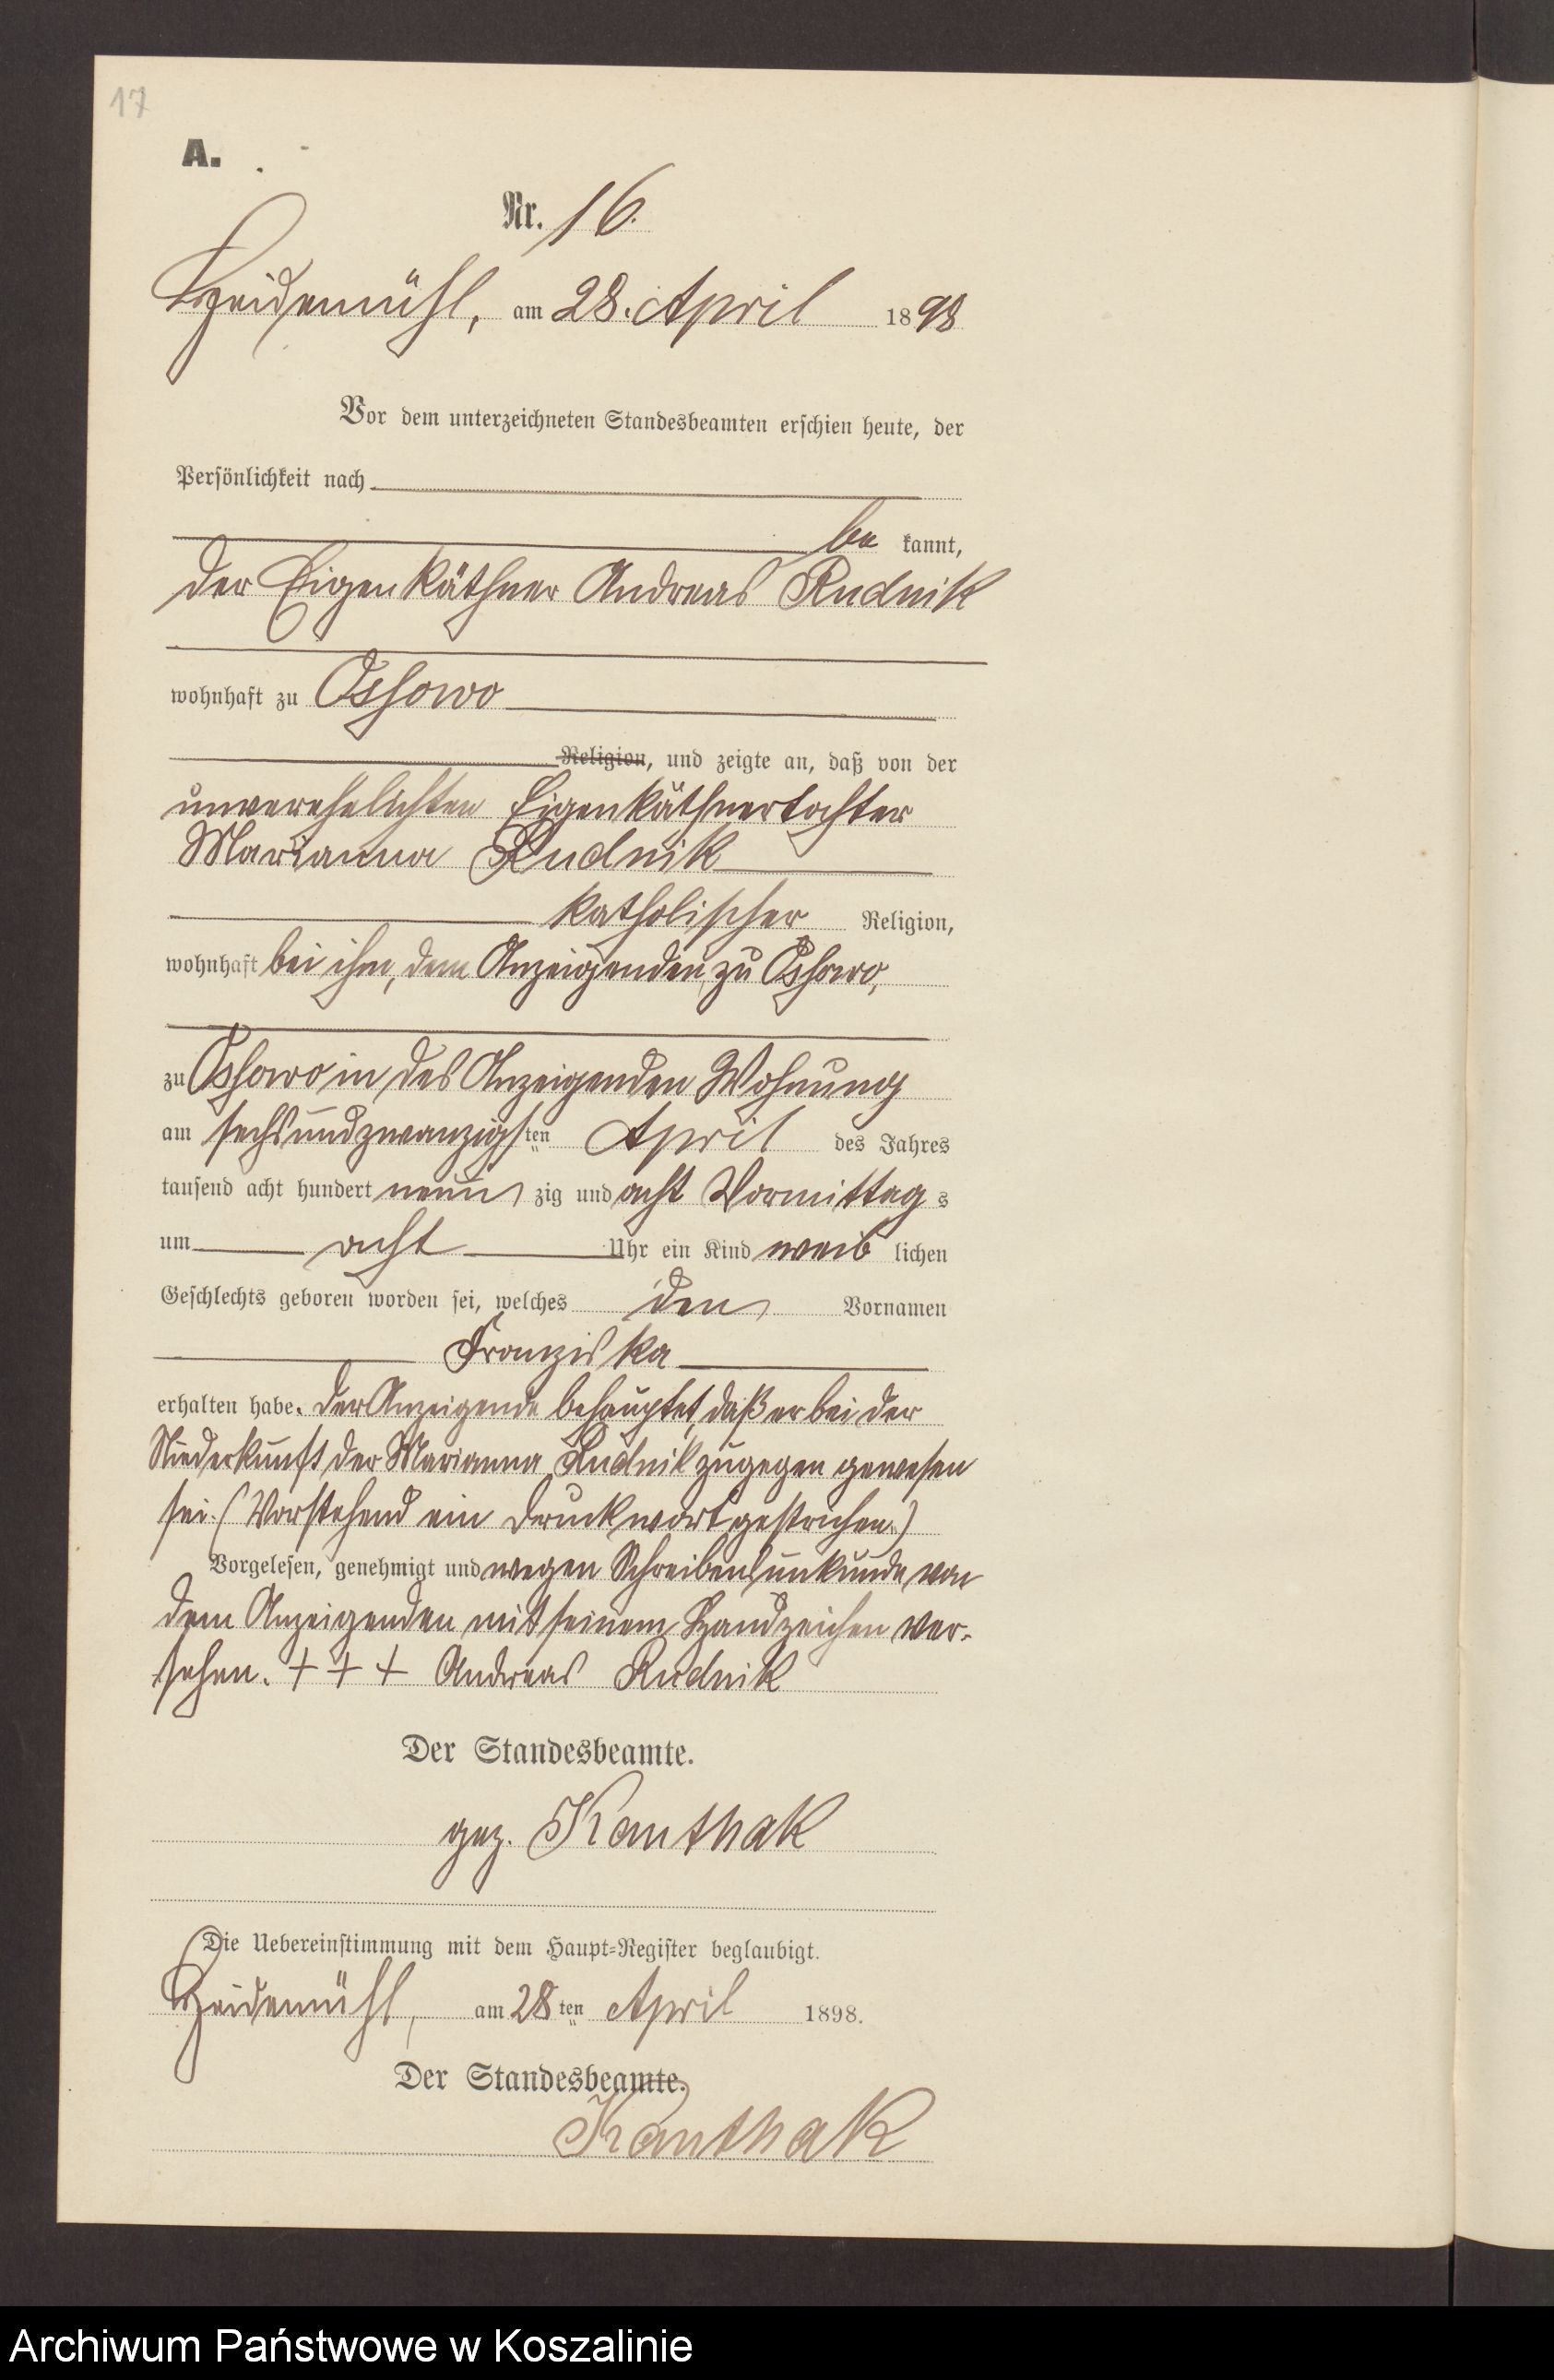 17
A.
Nr. 16.
Heidemühl, am 28. April 1898
Vor dem unterzeichneten Standesbeamten erschien heute, der
Persönlichkeit nach
be kannt,
der Eigenkäthner Andreas Rudnik
wohnhaft zu Ossowo
Religion, und zeigte an, daß von der
unverehelichten Eigenkäthnertochter
Marianna Rudnik
katholischer Religion,
wohnhaft bei ihm, dem Anzeigenden, zu Ossowo,
zu Ossowo in des Anzeigenden Wohnung
am sechsundzwanzigsten April des Jahres
tausend acht hundert neun zig und acht Vormittag s
um acht Uhr ein Kind weib lichen
Geschlechts geboren worden sei, welches den Vornamen
Franziska
erhalten habe. Der Anzeigende behauptet, daß er bei der
Niederkunft der Marianna Rudnik zugegen gewesen
sei. (Vorstehend ein Druckwort gestrichen.)
Vorgelesen, genehmigt und wegen Schreibensunkunde von
dem Anzeigenden mit seinem Handzeichen ver-
sehen. + + + Andreas Rudnik
Der Standesbeamte.
gez. Kanthak
Die Uebereinstimmung mit dem Haupt-Register beglaubigt.
Heidemühl, am 28 ten April 1898.
Der Standesbeamte.
Kanthak
Archiwum Państwowe w Koszalinie